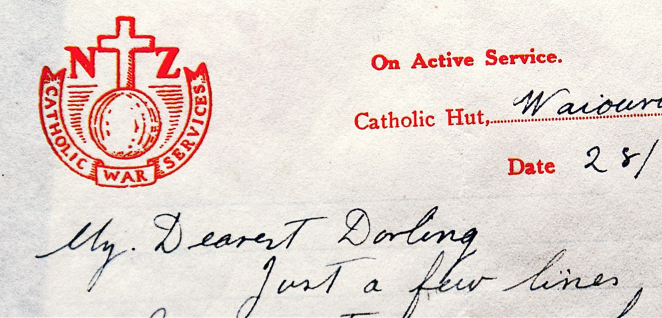 N Z
CATHOLIC WAR SERVICES
On Active Service.
Catholic Hut,
Date 28/
My. Dearest Darling
Just a few lines,